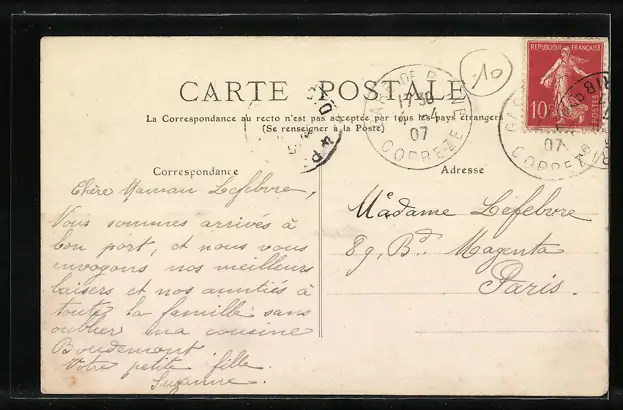 RÉPUBLIQUE FRANÇAISE
10c
POSTES
10
CARTE POSTALE
17 30
07
CORREZE
07
CORREZE
PARIS
La Correspondance au recto n'est pas acceptée par tous les pays étrangers
(Se renseigner à la Poste)
Correspondance
Adresse
Chère Maman Lefebvre,
Nous sommes arrivés à
bon port, et nous vous
envoyons nos meilleurs
baisers et nos amitiés à
toute la famille sans
oublier ma cousine
Boudemont.
Votre petite fille.
Suzanne.
Madame Lefebvre
89, Bd. Magenta
Paris.